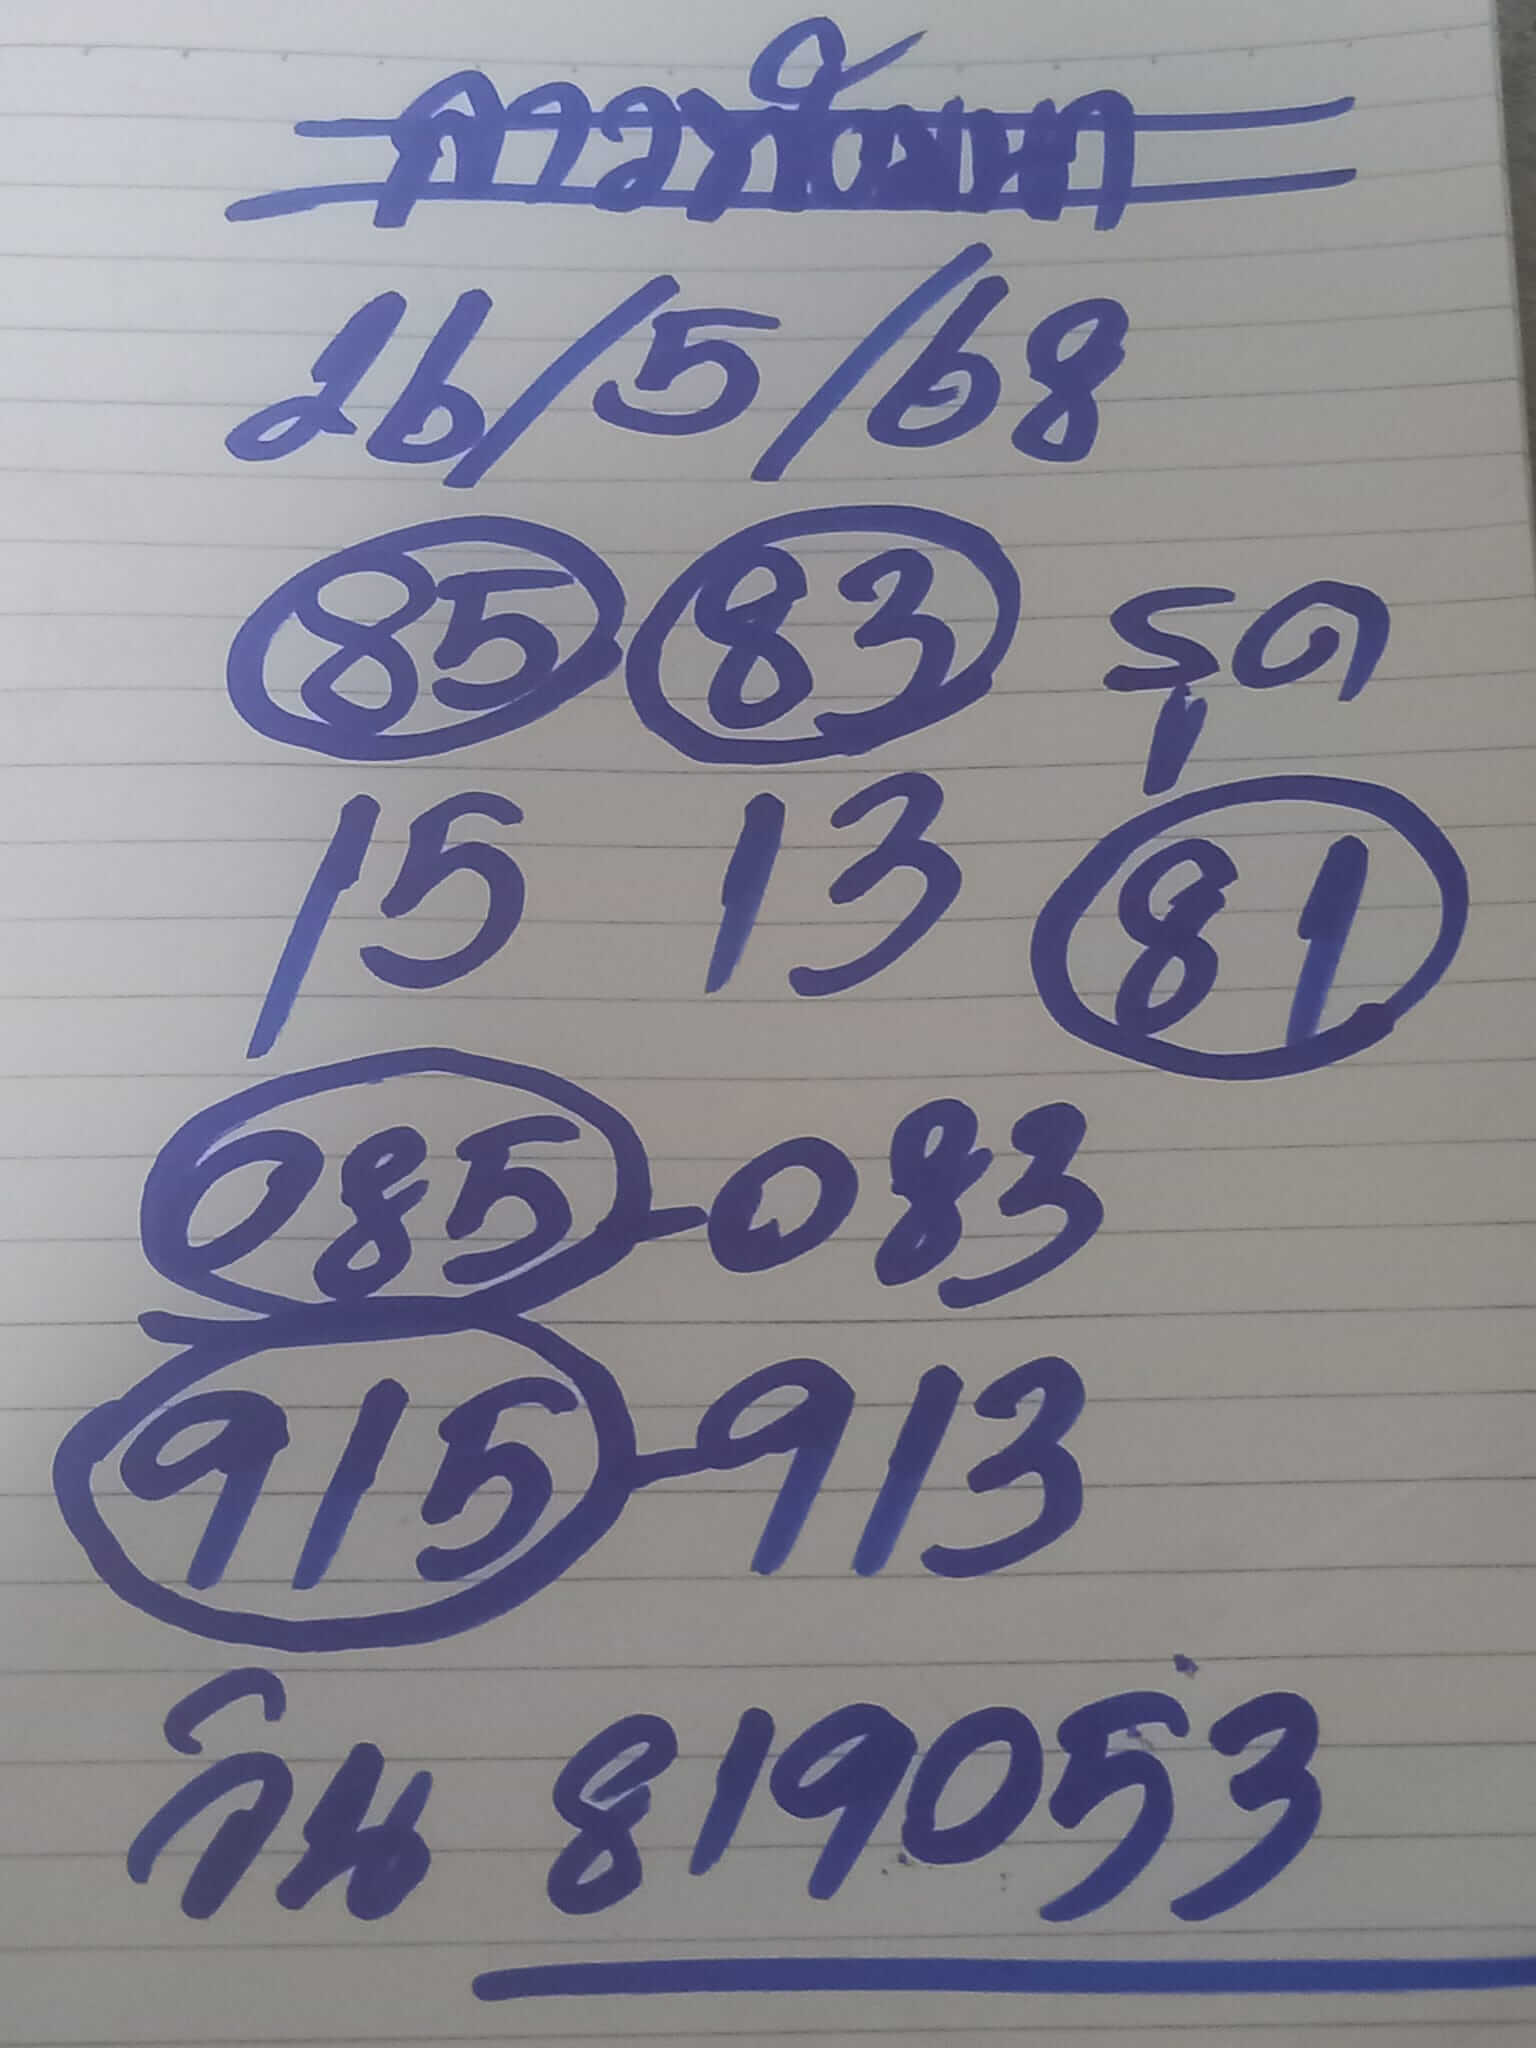 ลาวพัฒนา
26/5/68
85 83 รูด
15 13 81
085-083
915-913
วิน 819053